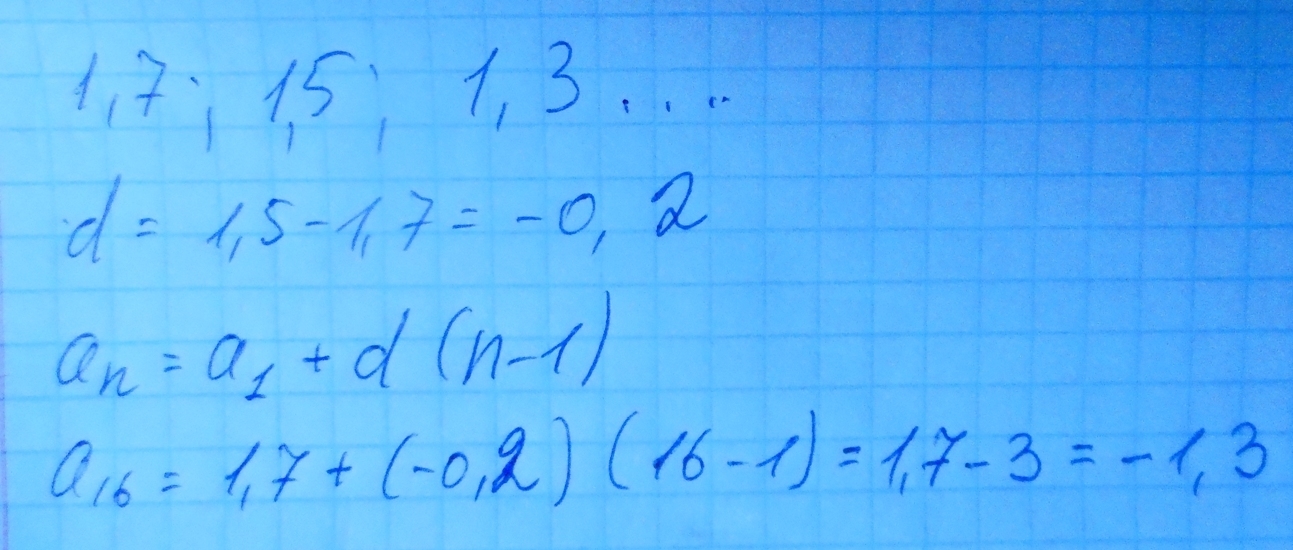 1,7; 1,5; 1,3 ....
d = 1,5-1,7 = -0,2
aₙ = a₁ + d (n-1)
a₁₆ = 1,7 + (-0,2) (16-1) = 1,7-3 = -1,3